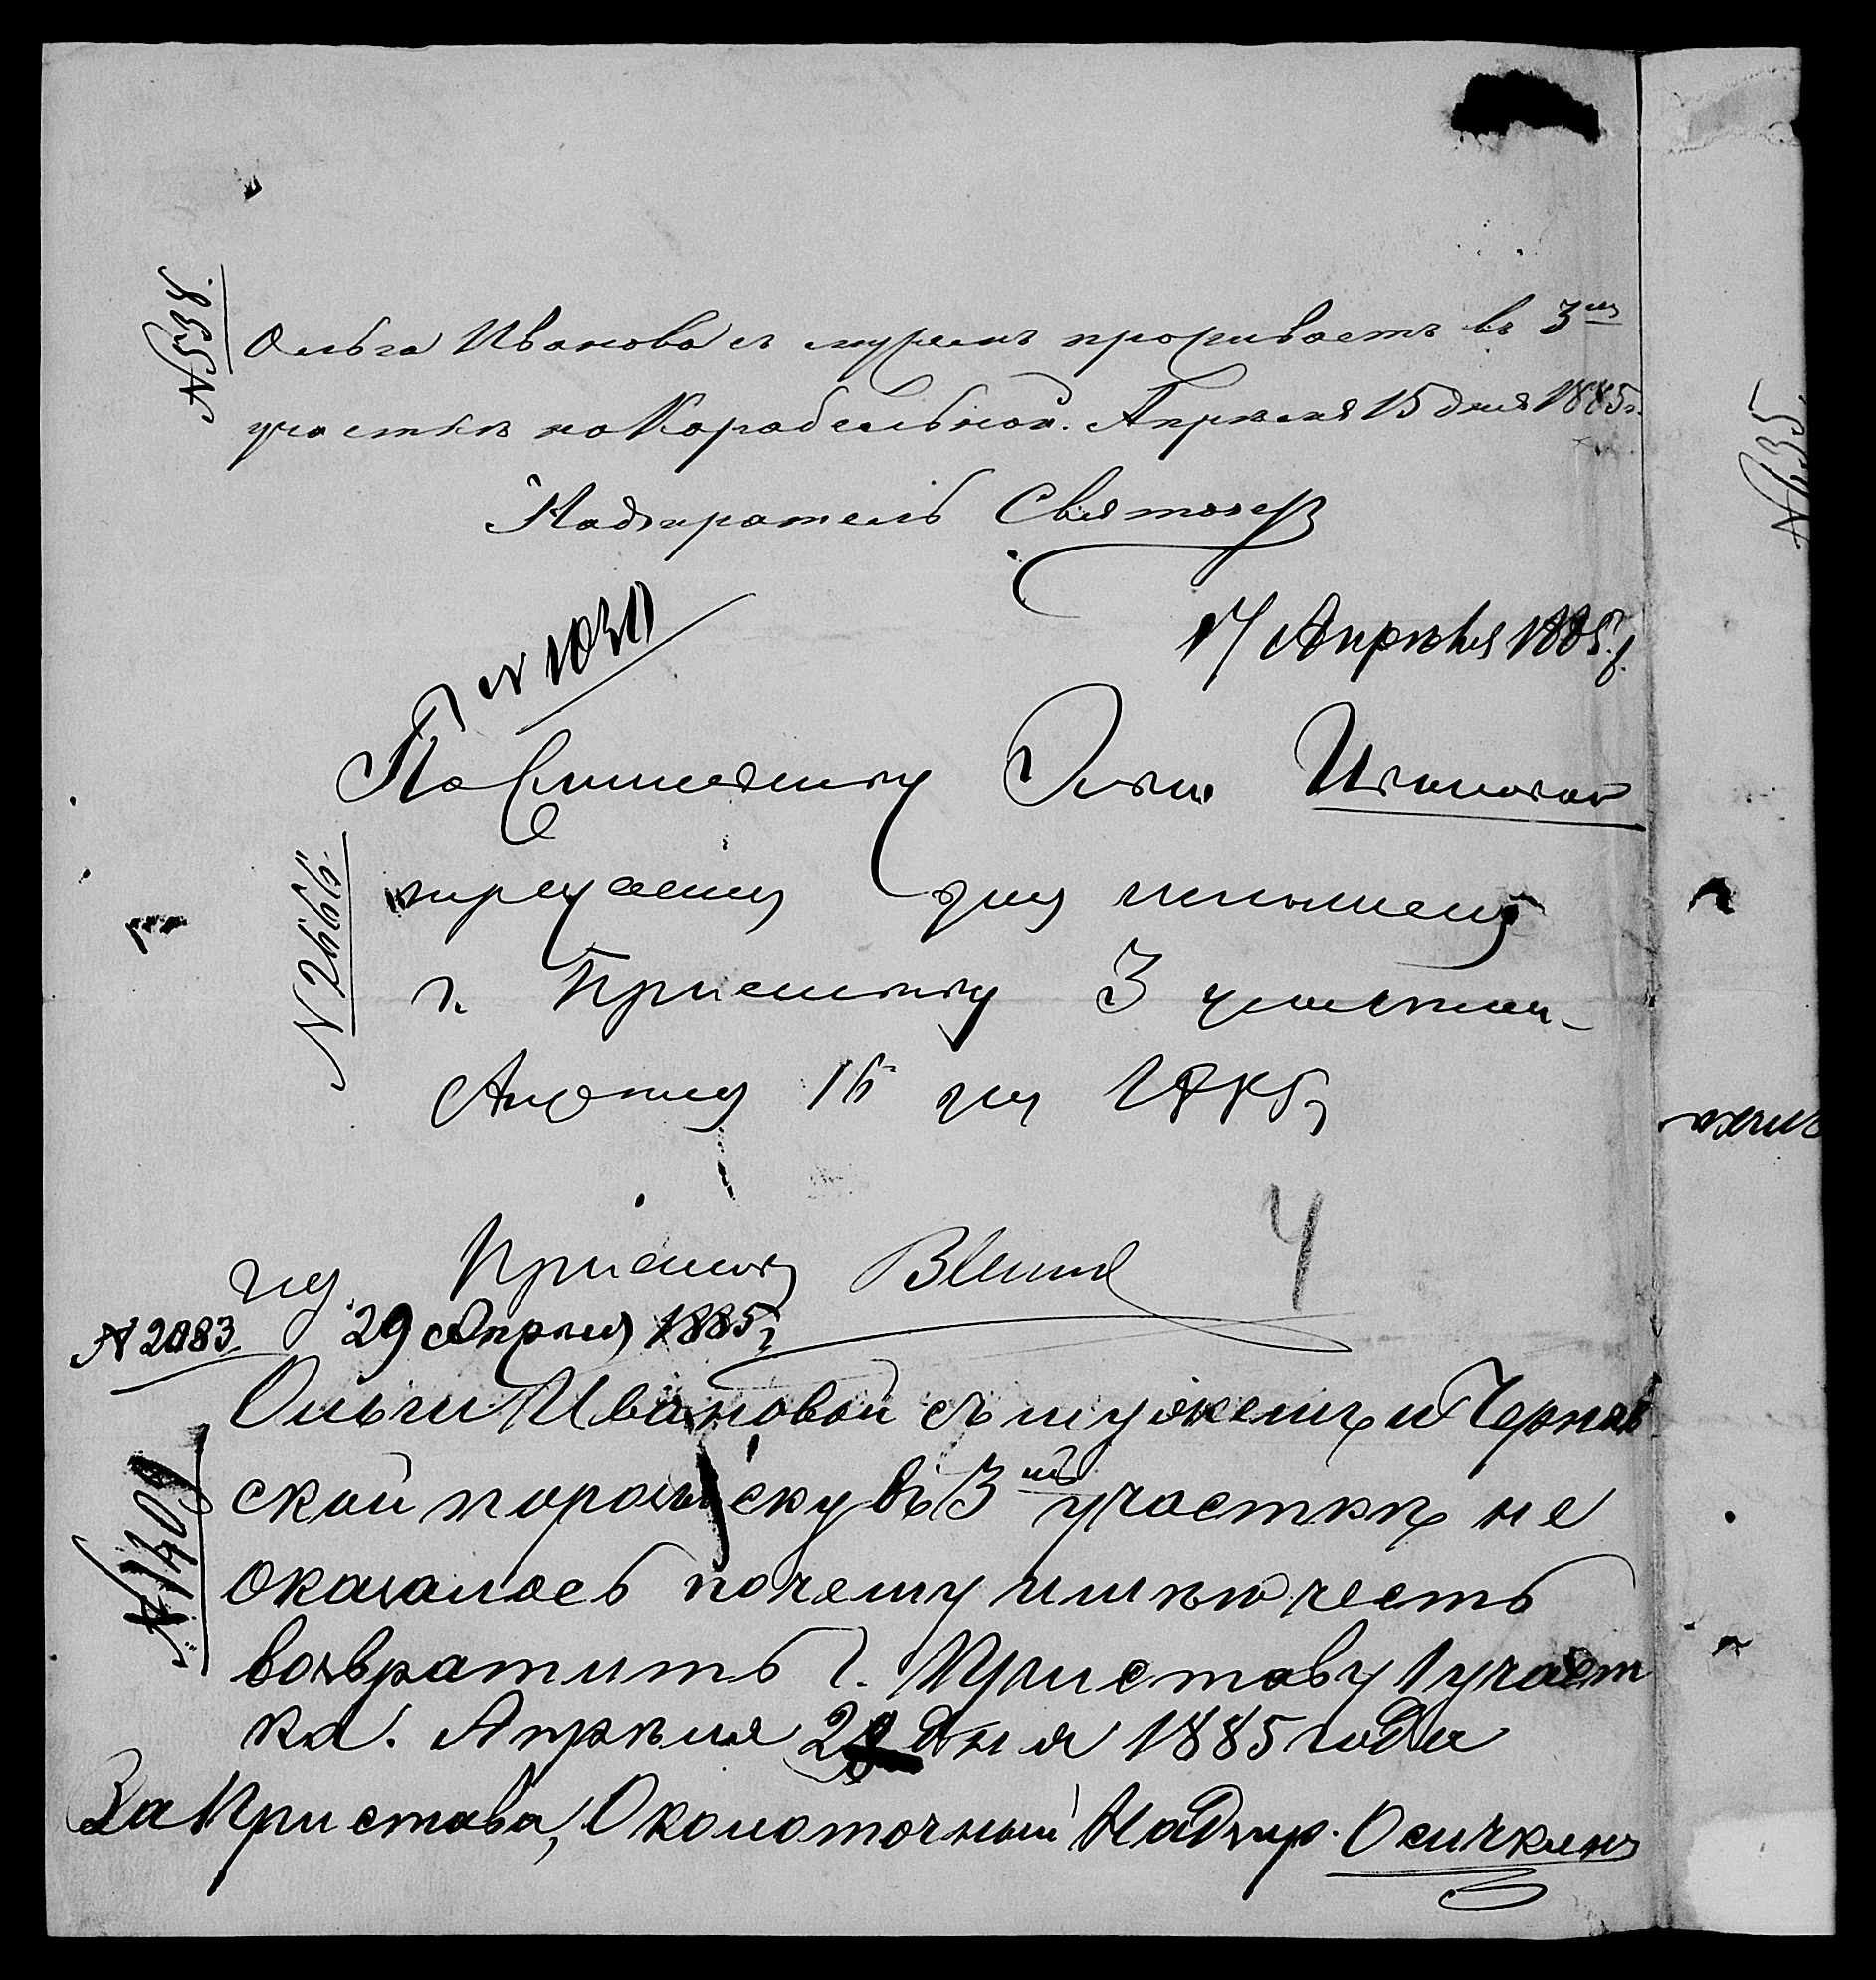 № 538.
Ольга Иванова съ мужемъ проживаетъ въ 3мъ
участкѣ на Корабельной. Апрѣля 15 дня 1885 г.
Надзиратель
17 Апрѣля 1885 г.
По Ольги Ивановой
передается для исполненія
г. Приставу 3 участка
Апрѣля 16 дня 1885 г.
№ 2666
Приставъ
4
№ 2083. 29 Апрѣля 1885 г.
Ольги Ивановой съ мужемъ и Черняв
ской по розыску въ 3мъ участкѣ не
№ 1409
оказалось почему имѣю честь
возвратить Г. Приставу 1 участ
ка. Апрѣля 28 дня 1885 года
За Пристава, Околоточный Надзир. Осичкинъ
№ 635